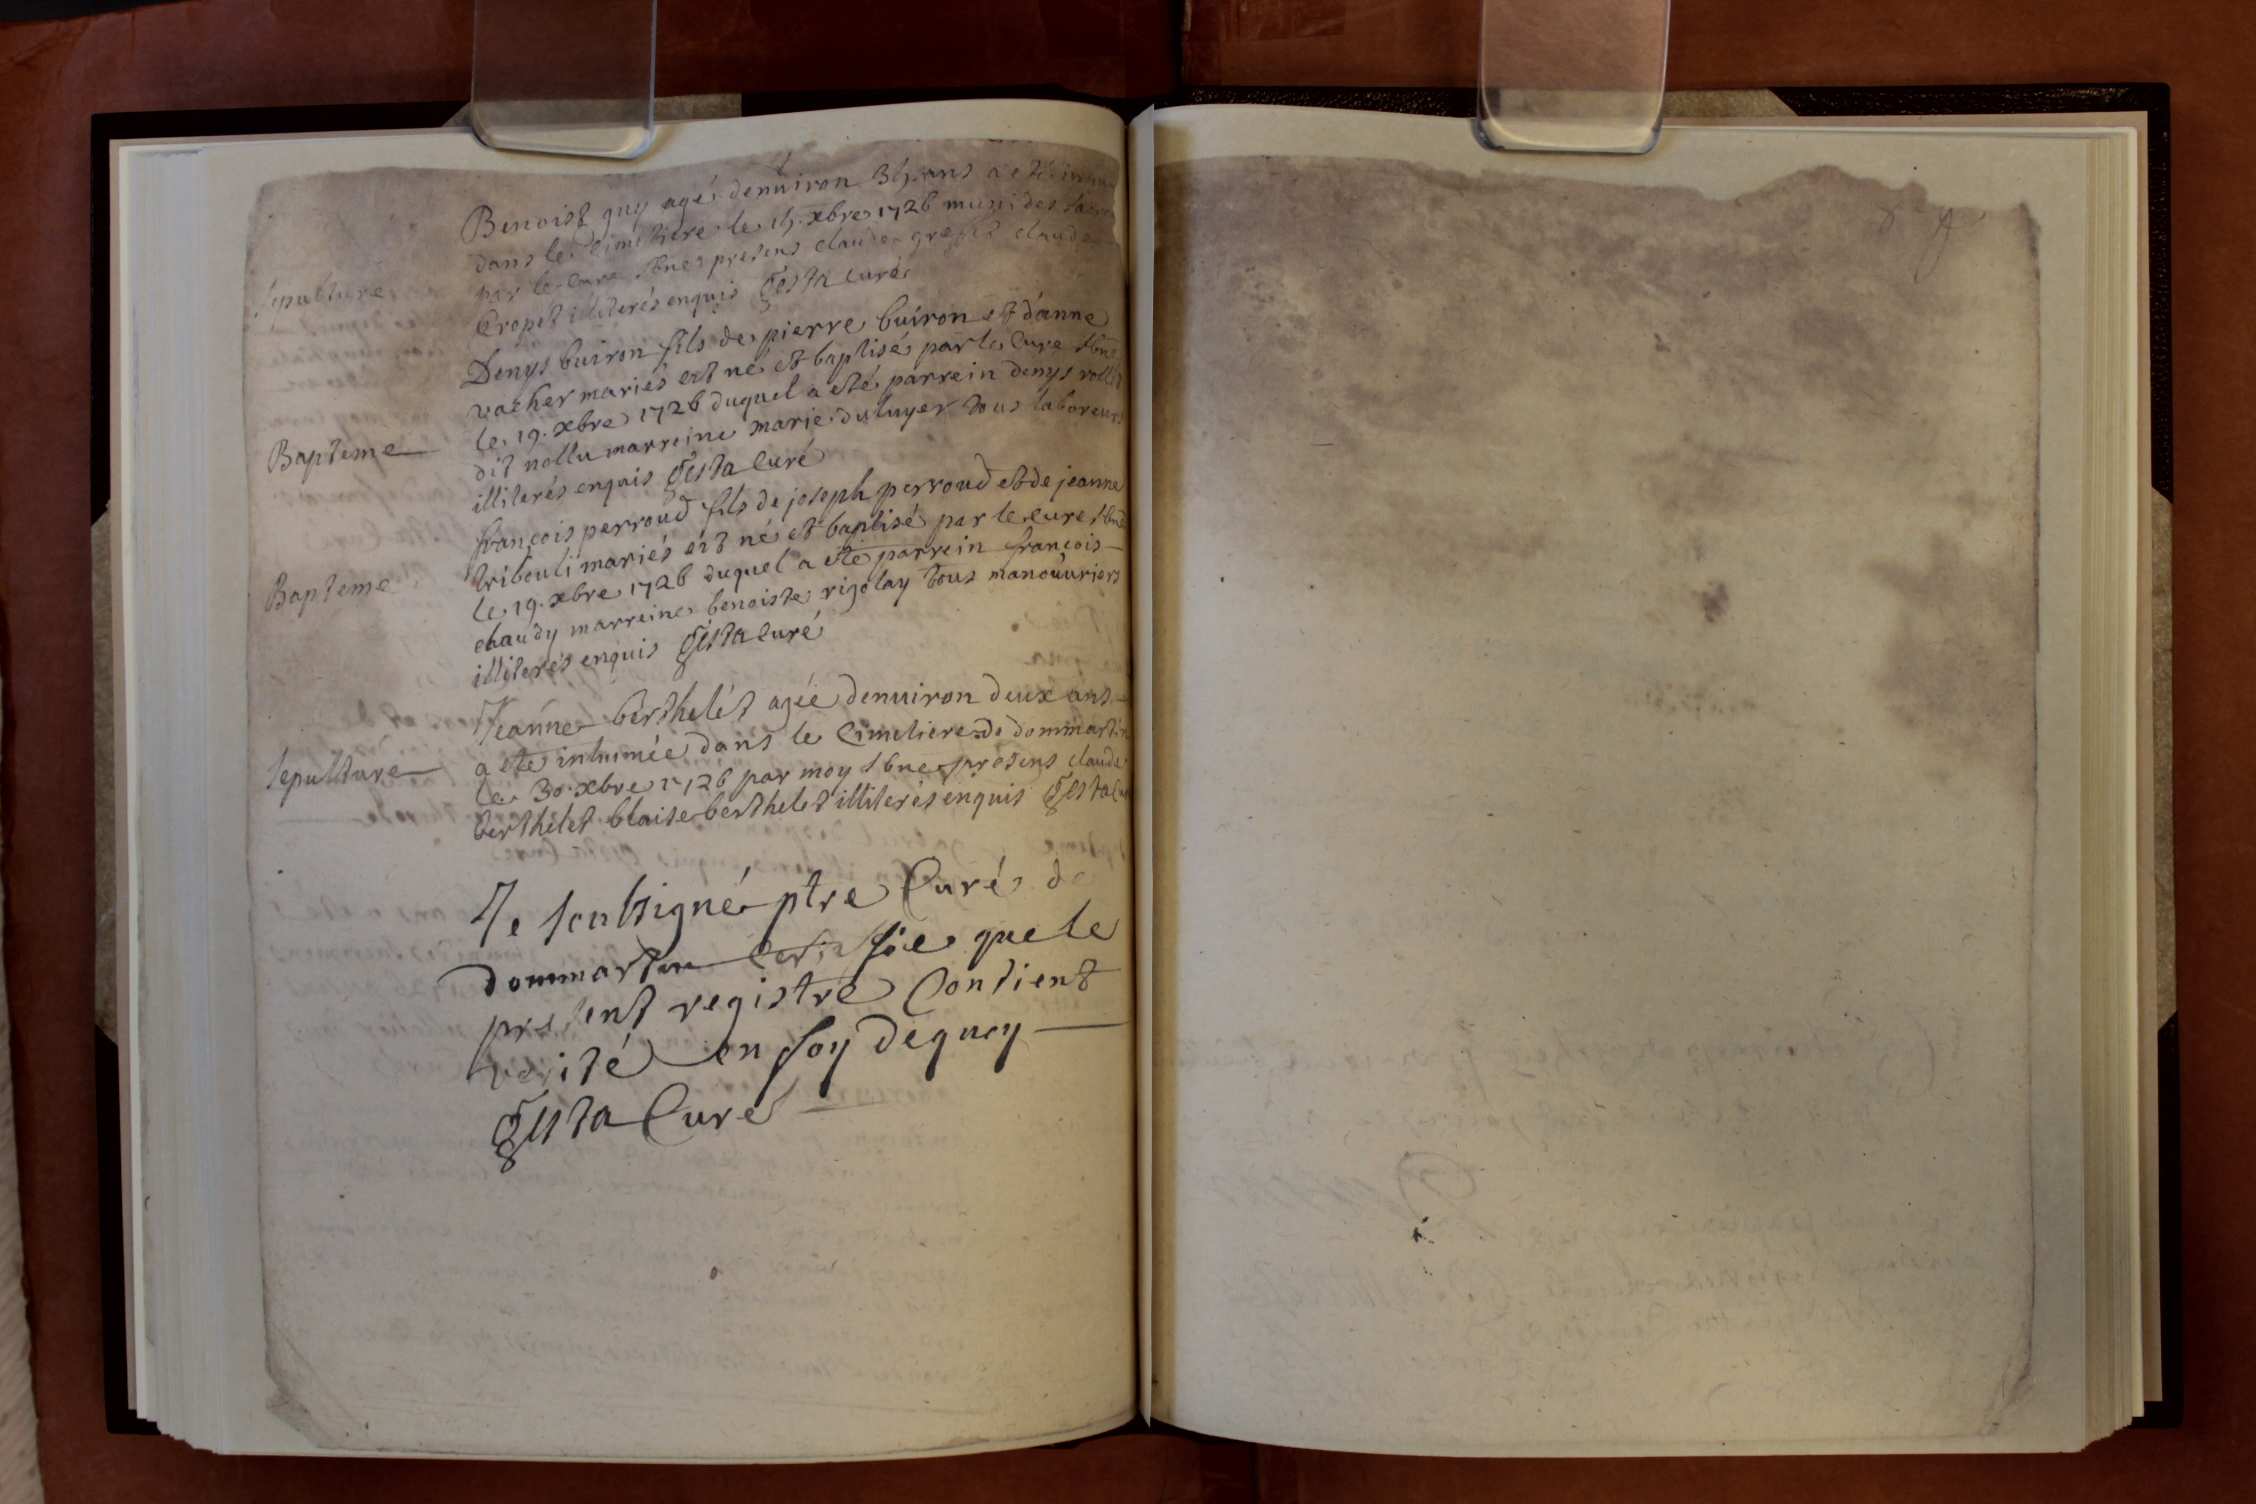 Benoist guy agé denuiron ans a eté
dans le Cimetiere le xbre 1726 muni des
par le Cure sbne presens claude claude
Cropet illiterés enquis Gesta Curé
Sepulture
Denys buiron fils de pierre buiron et d'anne
vacher mariés est né et baptisé par le Cure sbne
le 19. xbre 1726 duquel a eté parrein denys
dit nollu marreine marie duluyer tous laboreurs
illiterés enquis Gesta Curé
Bapteme
françois perroud fils de joseph perroud et de jeanne
tribouli mariés est né et baptisé par le cure sbne
le 19. xbre 1726 duquel a eté parrein françois
chaudy marreine benoiste rigolay tous manouuriers
illiterés enquis Gesta Curé
Bapteme
Jeanne berthelét agée denuiron deux ans
a eté inhumée dans le Cimetiere de dommartin
le 30. xbre 1726 par moy sbne presens claude
berthelet blaise berthelet illiterés enquis Gesta
Sepulture
Je soubsigné ptre Curé de
dommartin Certifie que le
present registre Contient
verité en foy dequoy
Gesta Curé